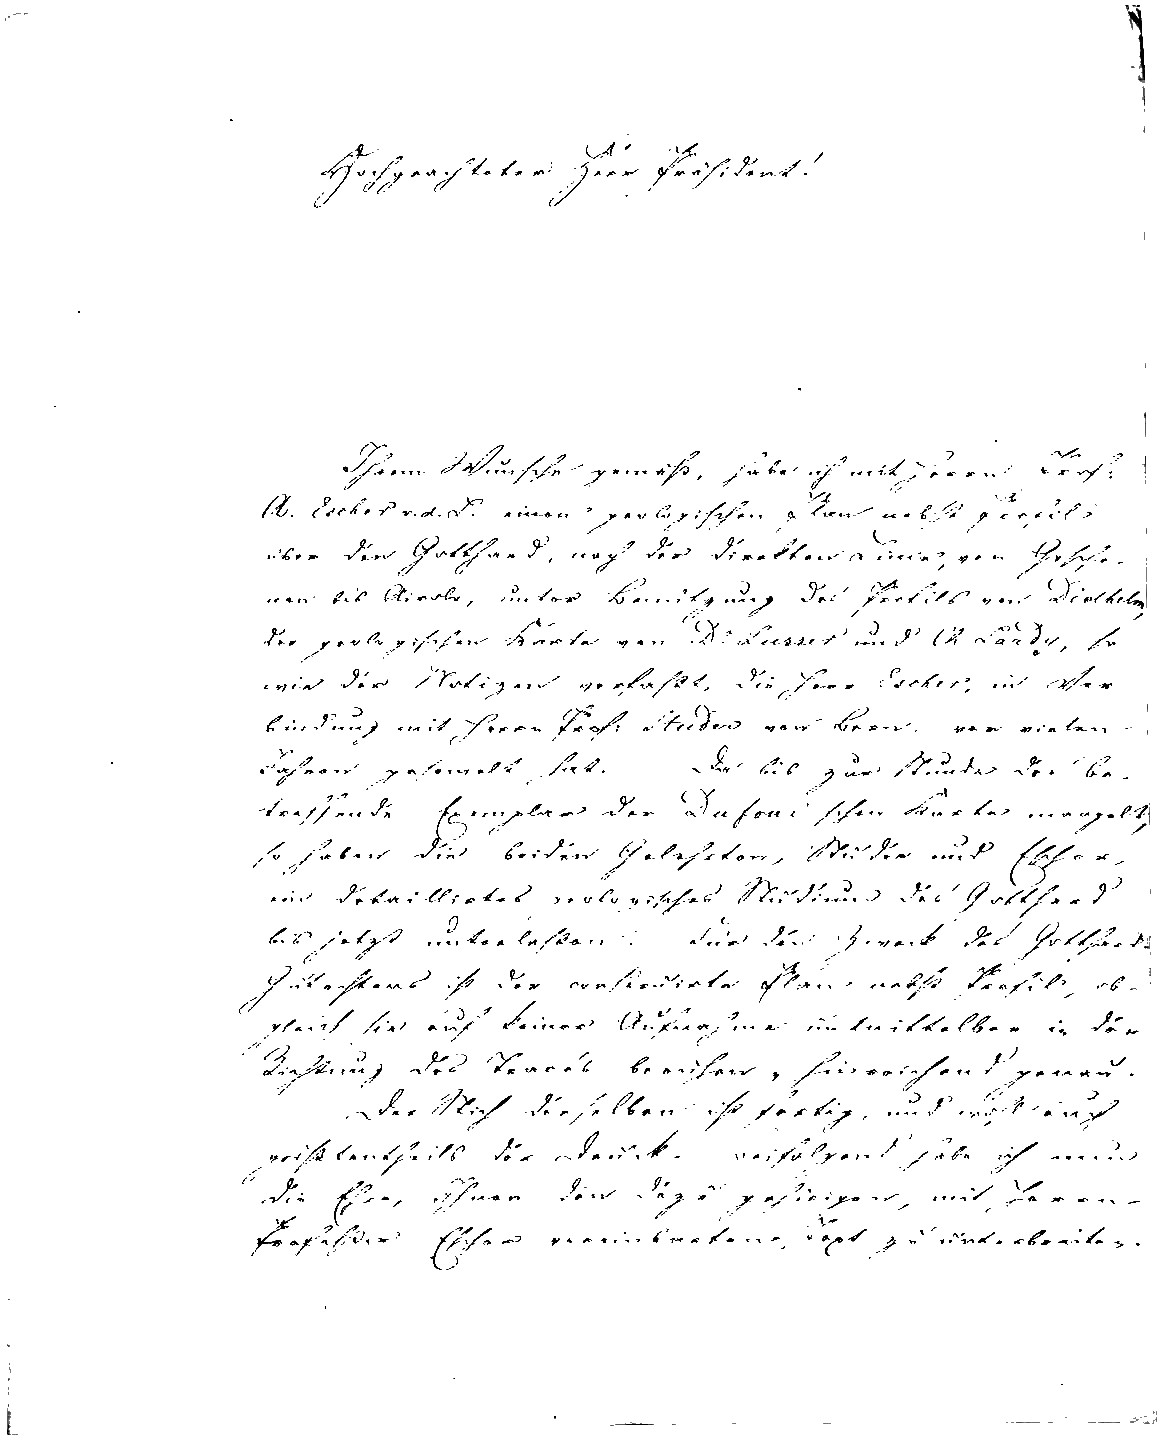 Hochgeachteter Herr Präsident!
Ihrem Wunsche gemäß, habe ich mit Herrn Prof.
A. Escher v. d. L. einen geologischen Plan nebst Profil
über den Gotthard, nach der direkten Linie, von Gesche-
nen bis Airolo, unter Benützung des Profils von Diethelm,
der geologischen Karte von Dr Lusser und Lardy, so
wie der Notizen verfaßt, die Herr Escher, in Ver
bindung mit Herrn Prof. Studer von Bern, vor vielen
Jahren gesamelt hat. Da bis zur Stunde das be-
treffende Exemplar der Dufour'schen Karte mangelt,
so haben die beiden Gelehrten, Studer und Escher,
ein detaillirtes geologisches Studium des Gotthard
bis jetzt unterlaßen. Für den Zweck des Gotthard-
Gutachtens ist der construirte Plan nebst Profil, ob-
gleich sie auf keiner Aufnahme unmittelbar in der
Richtung des Tracés beruhen, hinreichend genau.
Der Stich derselben ist fertig, und wohl auch
größtentheils der Druck. Beifolgend habe ich nun
die Ehre, Ihnen den dazu gehörigen, mit Herrn
Profeßor Escher vereinbarten, Text zu unterbreiten.